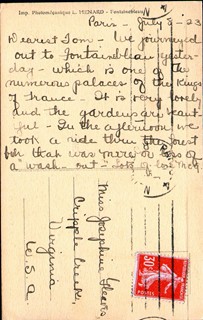 Imp. Photomécanique L. MENARD - Fontainebleau
Paris - July 3 - 23
Dearest Tom - We journeyed
out to Fontainbleau yester-
day - which is one of the
numerous palaces of the Kings
of France - It is very lovely
and the gardens are beaut-
iful - In the afternoon we
took a ride thru the forest
but that was more or less of
a "wash out - Lots of love
Miss Josephine
Cripple Creek
Virginia
U. S. A
30c
POSTES